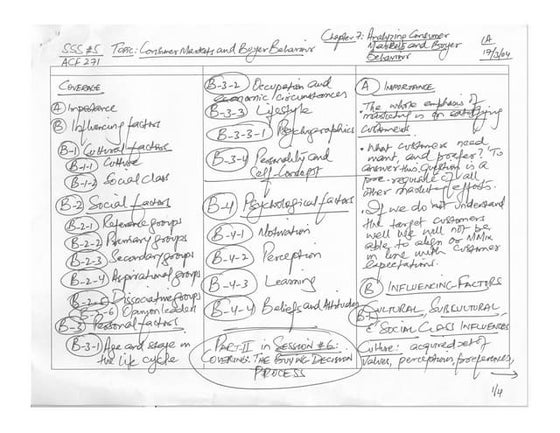 SSS #5 Topic: Consumer Markets and Buyer Behaviour
ACF 271
Chapter 7: Analyzing Consumer
Markets and Buyer
Behaviour
1A
17/3/04
COVERAGE
A IMPORTANCE
B Influencing factors
B-1 Cultural factors
B-1-1 Culture
B-1-2 Social Class
B-2 Social factors
B-2-1 Reference groups
B-2-2 Primary groups
B-2-3 Secondary groups
B-2-4 Aspirational groups
B-2-5 Dissociative groups
B-2-6 Opinion leaders
B-3 Personal factors
B-3-1 Age and stage in
the life cycle
B-3-2 Occupation and
economic circumstances
B-3-3 Lifestyle
B-3-3-1 Psychographics
B-3-4 Personality and
Self-Concept
B-4 Psychological factors
B-4-1 Motivation
B-4-2 Perception
B-4-3 Learning
B-4-4 Beliefs and Attitudes
PART-II in SESSION #6:
COVERING: THE BUYING DECISION
PROCESS
A IMPORTANCE
• The whole emphasis of
marketing is on satisfying
customers.
• What customers need
want, and prefer? To
answer this question is a
pre-requisite of all
other marketing efforts.
• If we do not understand
the target customers
well we will not be
able to align our MMix
in line with customer
expectations.
B INFLUENCING FACTORS
B-1 CULTURAL, SUBCULTURAL
& SOCIAL CLASS INFLUENCES
Culture: acquired set of
values, perceptions, preferences,
1/4